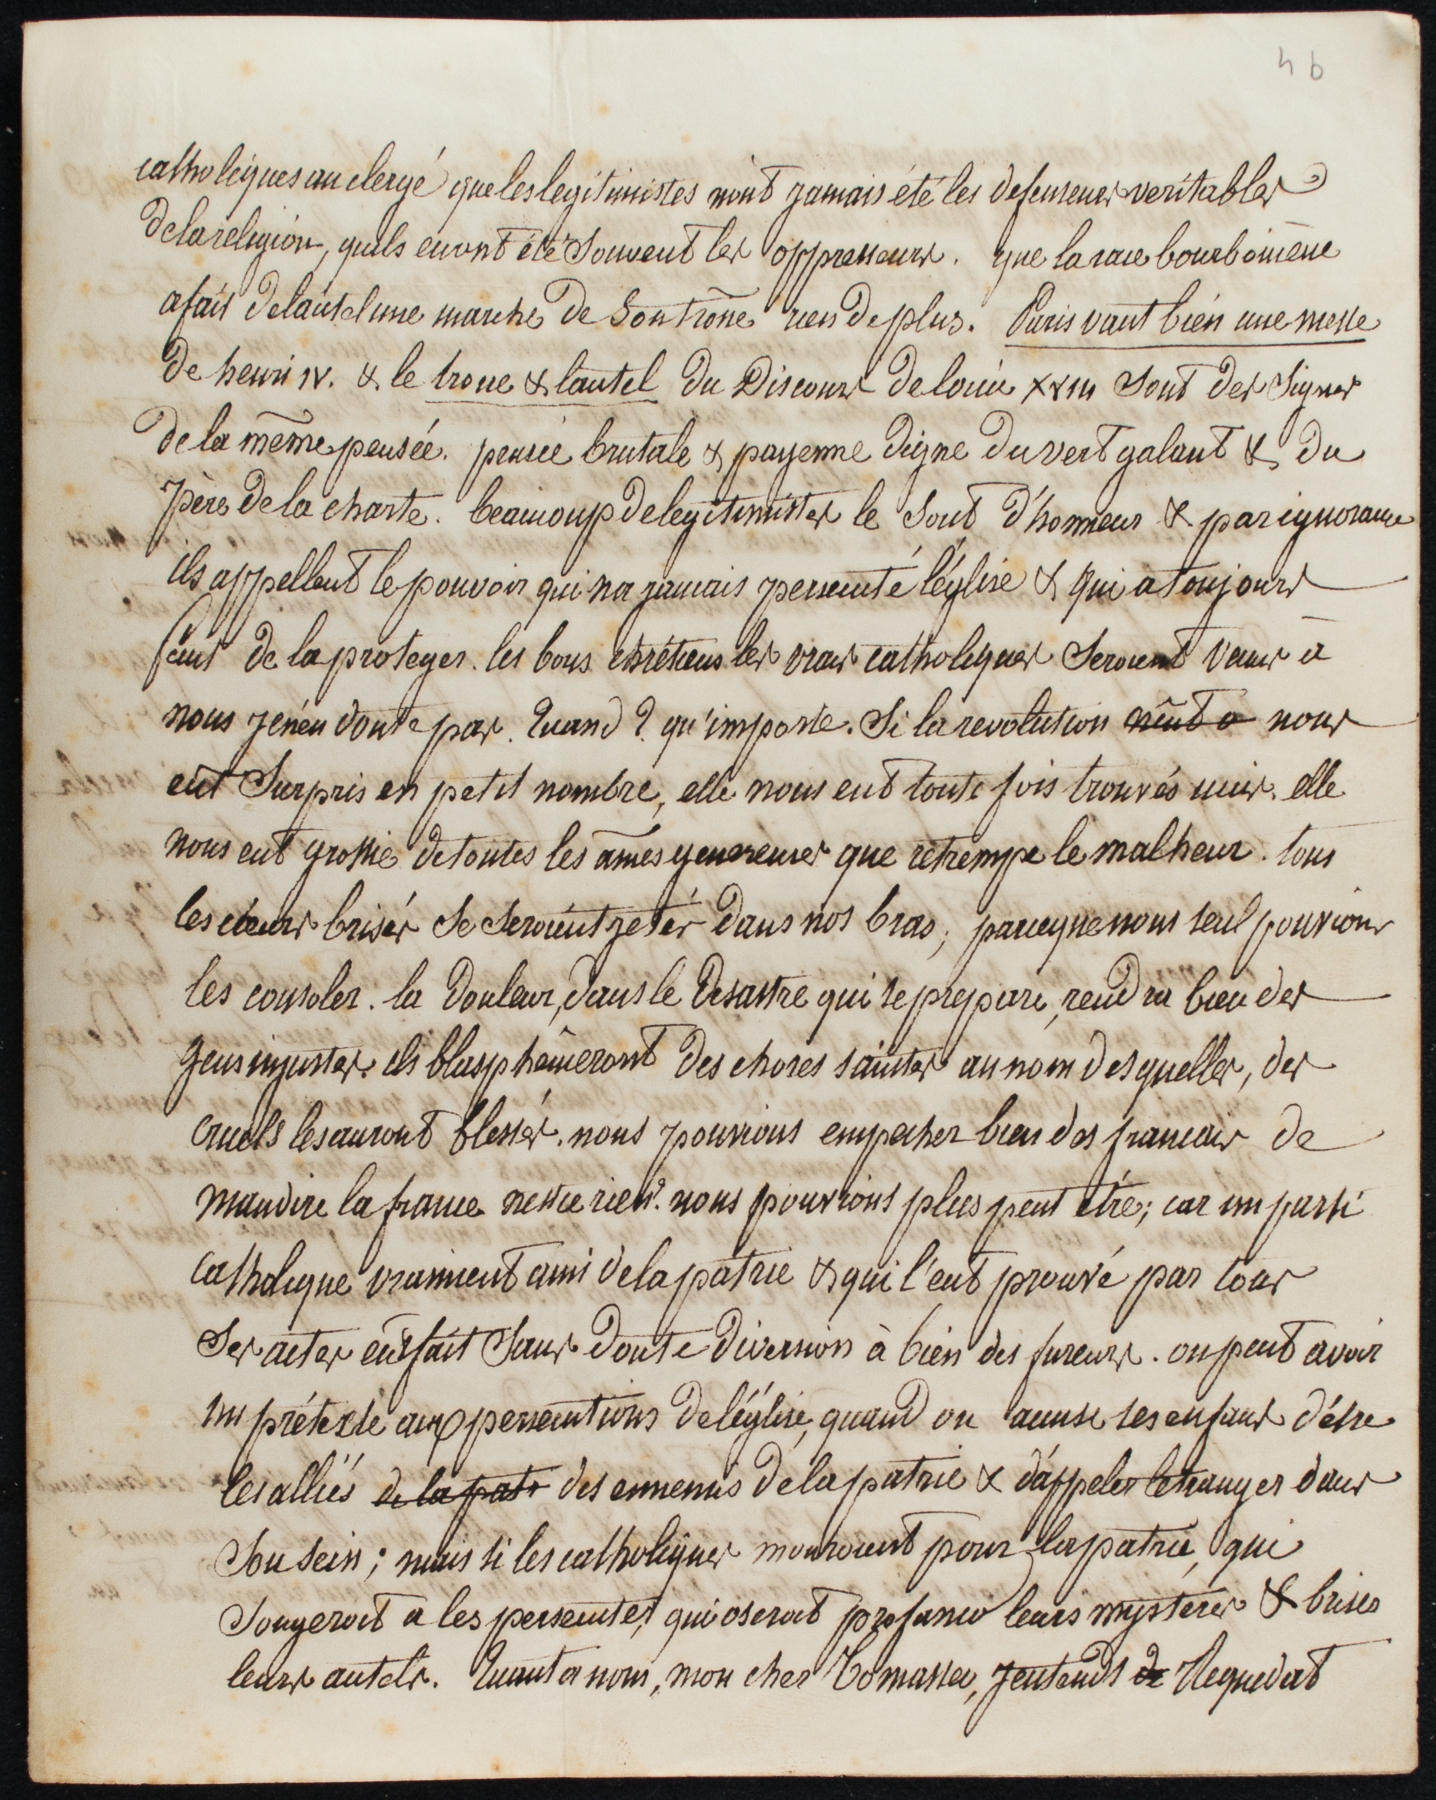 46
catholiques au clergé que les legitimistes n'ont jamais été les defenseurs veritables
de la religion, quils en ont été souvent les oppresseurs. que la race bourbonienne
a fait de lautel une marche de son trône rien de plus. Paris vaut bien une messe
de henri IV. & le trone & lautel du Discours de louis XVIII sont des signes
de la même pensée. pensée brutale & payenne digne du vert galant & du
père de la charte. beaucoup de legitimistes le sont d'honneur & par ignorance
ils appellent le pouvoir qui na jamais persecuté léglise & qui a toujours
feint de la proteger. les bons chrétiens les vrais catholiques seroient venus à
nous je n'en doute pas. Quand ? qu'importe. Si la revolution n'eut a nous
eut surpris en petit nombre, elle nous eut toute fois trouvés unis. elle
nous eut grossie de toutes les âmes genereuses que retrempe le malheur. tous
les cœurs brisés se seroient jetés dans nos bras, parceque nous seul pouvions
les consoler. la douleur, dans le desastre qui se prepare, rendra bien des
gens injustes. ils blasphêmeront des choses saintes au nom desquelles, des
cruels les auront blessés. nous pouvions empecher bien des francais de
maudire la france nesce rien? nous pouvions plus peut etre; car un parti
catholique vraiment ami de la patrie & qui l'eut prouvé par tous
ses actes eut fait sans doute diversion à bien des fureurs. on peut avoir
un prétexte aux persecutions de léglise, quand on accuse ses enfans d'être
les alliés de la patr des ennemis de la patrie & d'appeler letranger dans
son sein; mais si les catholiques mouroient pour la patrie, qui
songeroit a les persecuter, qui oseroit profaner leurs mystères & briser
leurs autels. Quant a nous, mon cher Tomasseo, jentends de Requedat